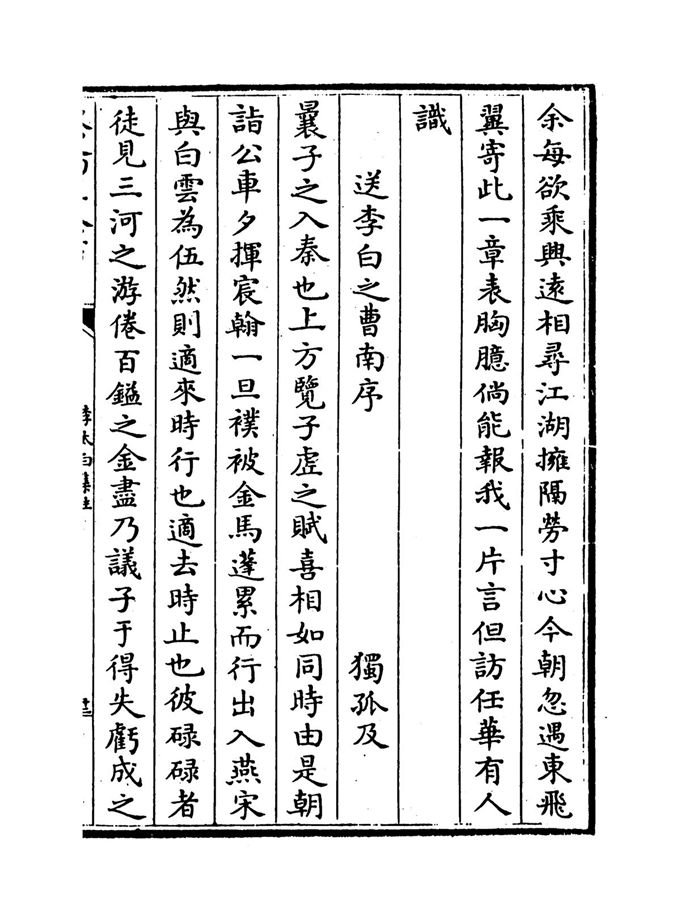 余每欲乘興遠相尋江湖擁隔勞寸心今朝忽遇東飛
翼寄此一章表胸臆倘能報我一片言但訪任華有人
識
送李白之曹南序 獨孤及
曩子之入秦也上方覽子虛之賦喜相如同時由是朝
詣公車夕揮宸翰一旦襆被金馬蓬累而行出入燕宋
與白雲為伍然則適來時行也適去時止也彼碌碌者
徒見三河之游倦百鎰之金盡乃議子于得失虧成之
李太白集注